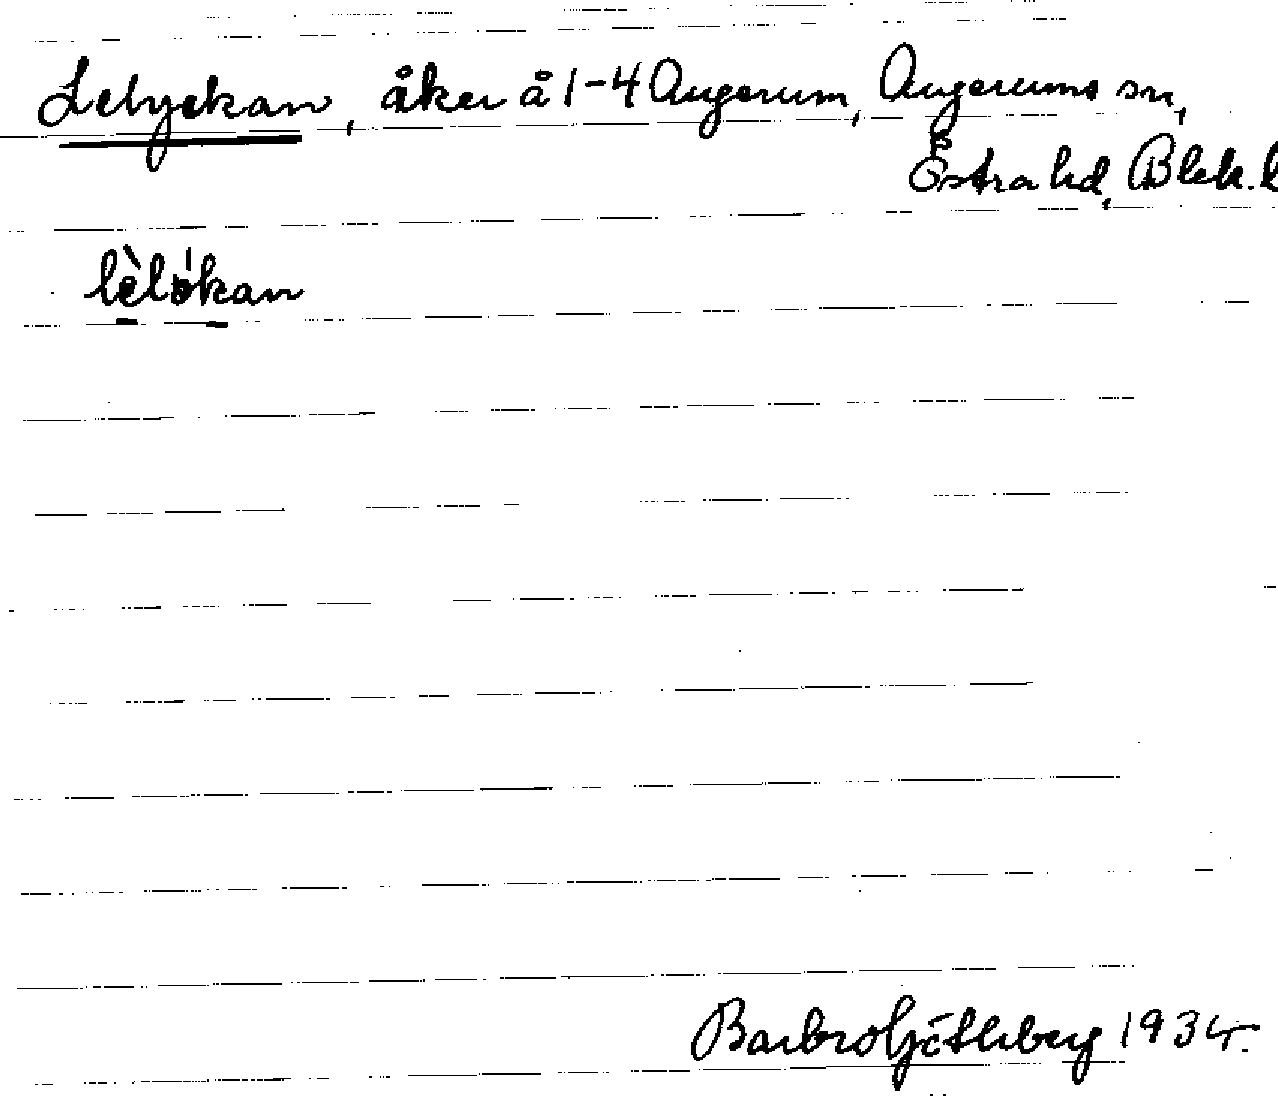 Lelyckan, åker å 1-4 Augerum, Augerums sn,
Östra hd, Blek. l
lèlókan
Barbro Götheberg 1934.